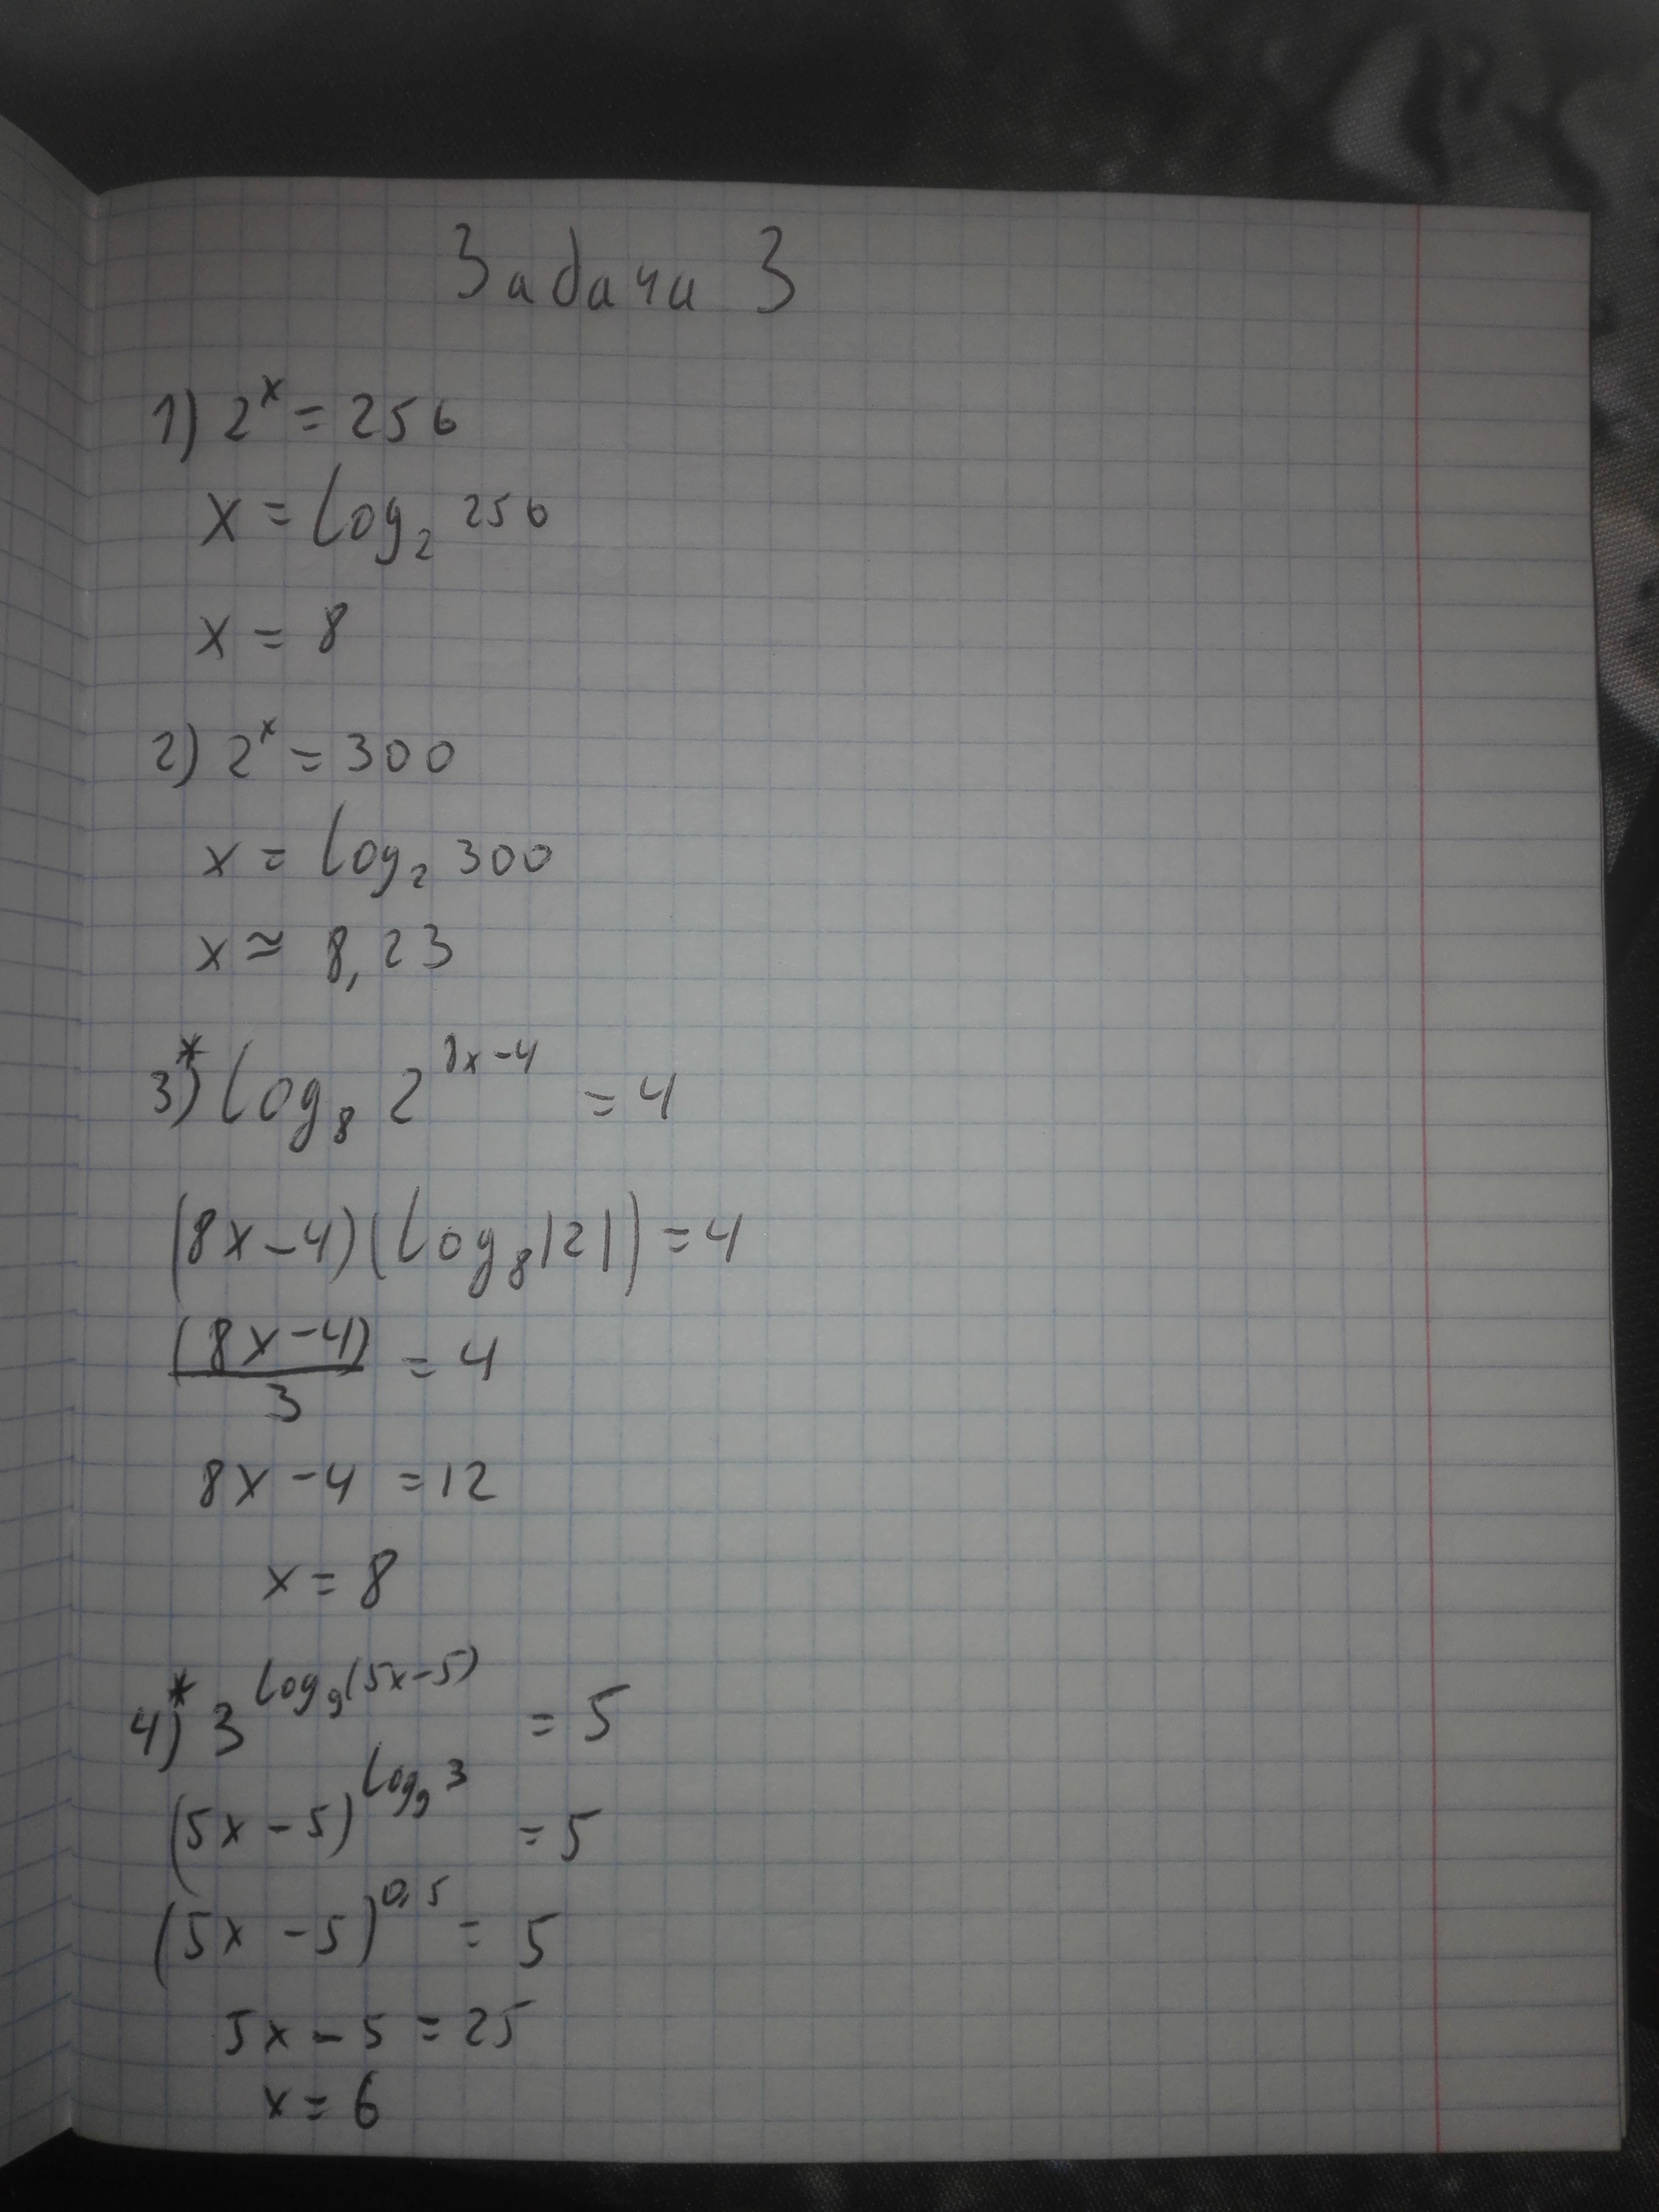 Задача 3
1) 2^x = 256
x = log₂ 256
x = 8
2) 2^x = 300
x = log₂ 300
x ≈ 8,23
3*) log₈ 2^(8x-4) = 4
(8x-4)(log₈|2|) = 4
(8x-4)/3 = 4
8x-4 = 12
x = 8
4*) 3^(log₉(5x-5)) = 5
(5x-5)^(log₉3) = 5
(5x-5)^0,5 = 5
5x-5 = 25
x = 6